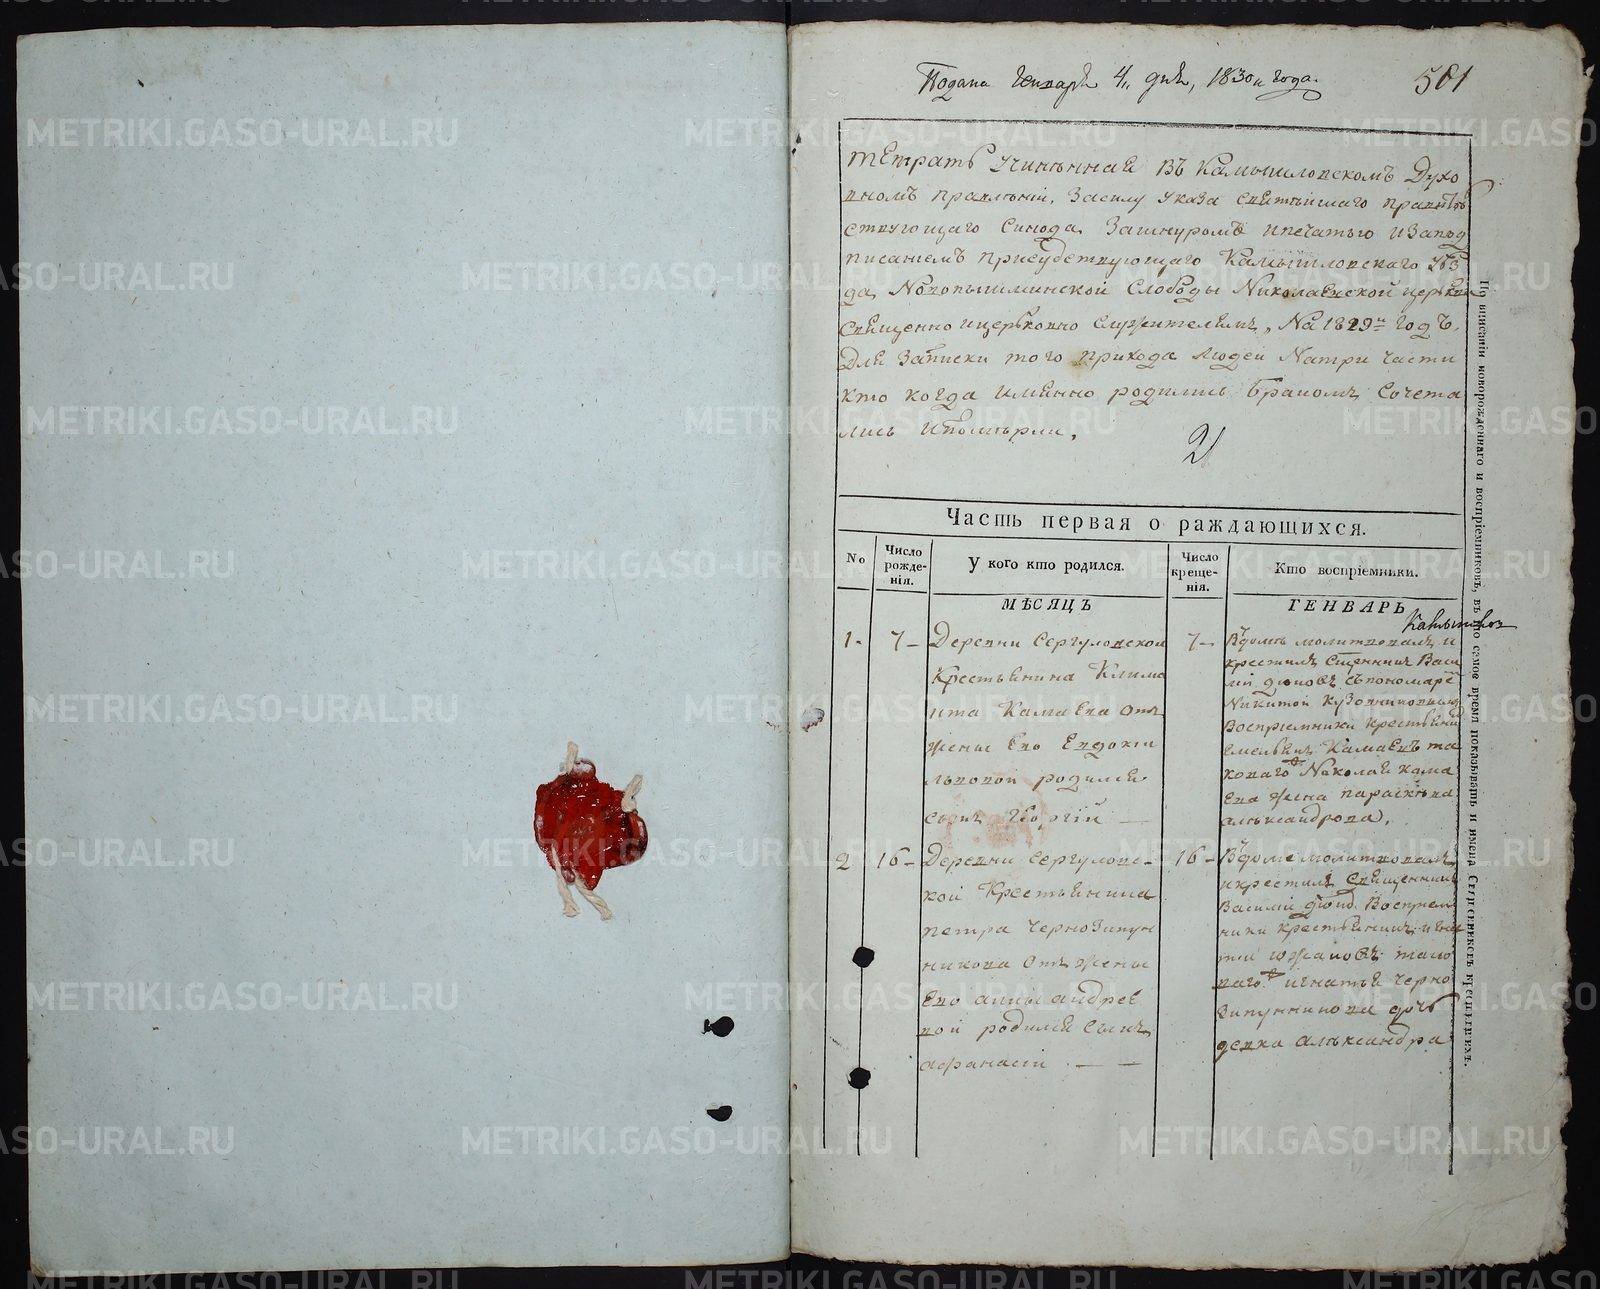 Подана Генваря 4, дня, 1830 года.
501
Тетрать учиненная въ Камышловскомъ Духо
вномъ правленіи, засилу указа святѣйшаго правитель
ствующаго Синода, Зашнуромъ ипечатью изапод
писаніемъ присудствующаго Камышловскаго уѣз
да, Новопышминской Слободы Николаевской церкви
священно ицерковно служителямъ, На 1829й годъ,
Для Записки того прихода людей Натри части
кто когда имянно родились Бракомъ Сочета
лись ипомѣрли,
2
Часть первая о раждающихся.
No
Число рожде-нія.
У кого кто родился.
Число креще-нія.
Кто воспріемники.
МѢСЯЦЪ
ГЕНВАРЬ
1.
7
Деревни Сергуловской
крестьянина Клима
Камаева отъ
жены Ево Евдокіи
родился
сынъ Георгій
7
Вдомѣ молитвовалъ и
крестилъ Сщенникъ Васи
лій съпономаремъ
Никитой
Воспріемники крестьянинъ
Камаевъ та
коваго Николая Кама
ева жена параскѣва
алѣксандрова,
2
16
Деревни Сергуловс-
кой Крестьянина
петра Чернозипун
никова отъ жены
Ево анны андрее
вой родился Сынъ
афанасій
16
Вдоме молитвовалъ
икрестилъ Священникъ
Василій Воспріем
ники крестьянинъ
тако
ваго игнатья Черно
зипунникова дочь
девка алѣксандра
По вписаніи новорожденнаго и воспріемниковъ, въ то самое время показывать и имена Священниковъ крестившихъ.
METRIKI.GASO-URAL.RU